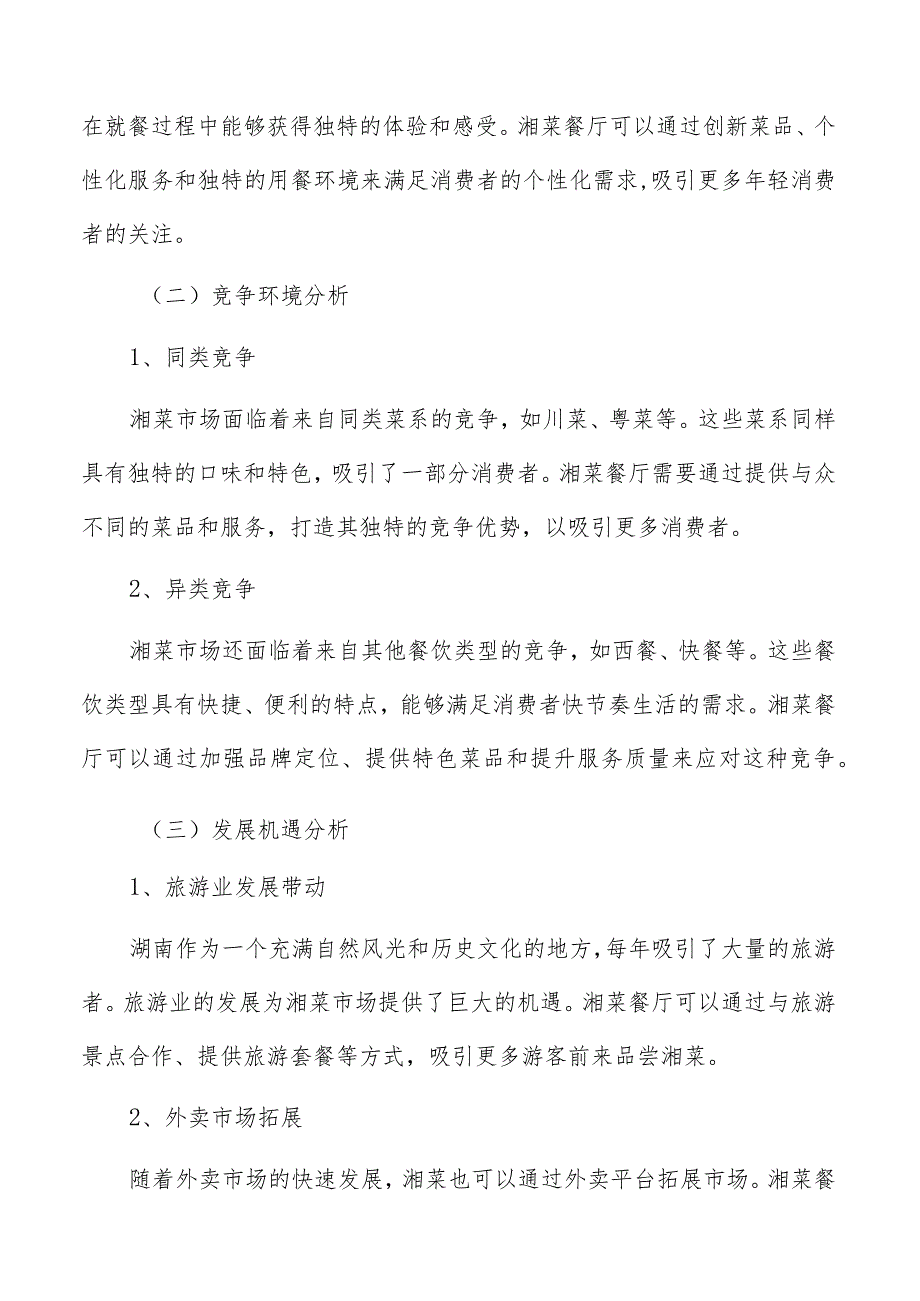 在就餐过程中能够获得独特的体验和感受。湘菜餐厅可以通过创新菜品、个
性化服务和独特的用餐环境来满足消费者的个性化需求,吸引更多年轻消费
者的关注。
（二）竞争环境分析
1、同类竞争
湘菜市场面临着来自同类菜系的竞争，如川菜、粤菜等。这些菜系同样
具有独特的口味和特色，吸引了一部分消费者。湘菜餐厅需要通过提供与众
不同的菜品和服务，打造其独特的竞争优势，以吸引更多消费者。
2、异类竞争
湘菜市场还面临着来自其他餐饮类型的竞争，如西餐、快餐等。这些餐
饮类型具有快捷、便利的特点，能够满足消费者快节奏生活的需求。湘菜餐
厅可以通过加强品牌定位、提供特色菜品和提升服务质量来应对这种竞争。
（三）发展机遇分析
1、旅游业发展带动
湖南作为一个充满自然风光和历史文化的地方，每年吸引了大量的旅游
者。旅游业的发展为湘菜市场提供了巨大的机遇。湘菜餐厅可以通过与旅游
景点合作、提供旅游套餐等方式，吸引更多游客前来品尝湘菜。
2、外卖市场拓展
随着外卖市场的快速发展，湘菜也可以通过外卖平台拓展市场。湘菜餐